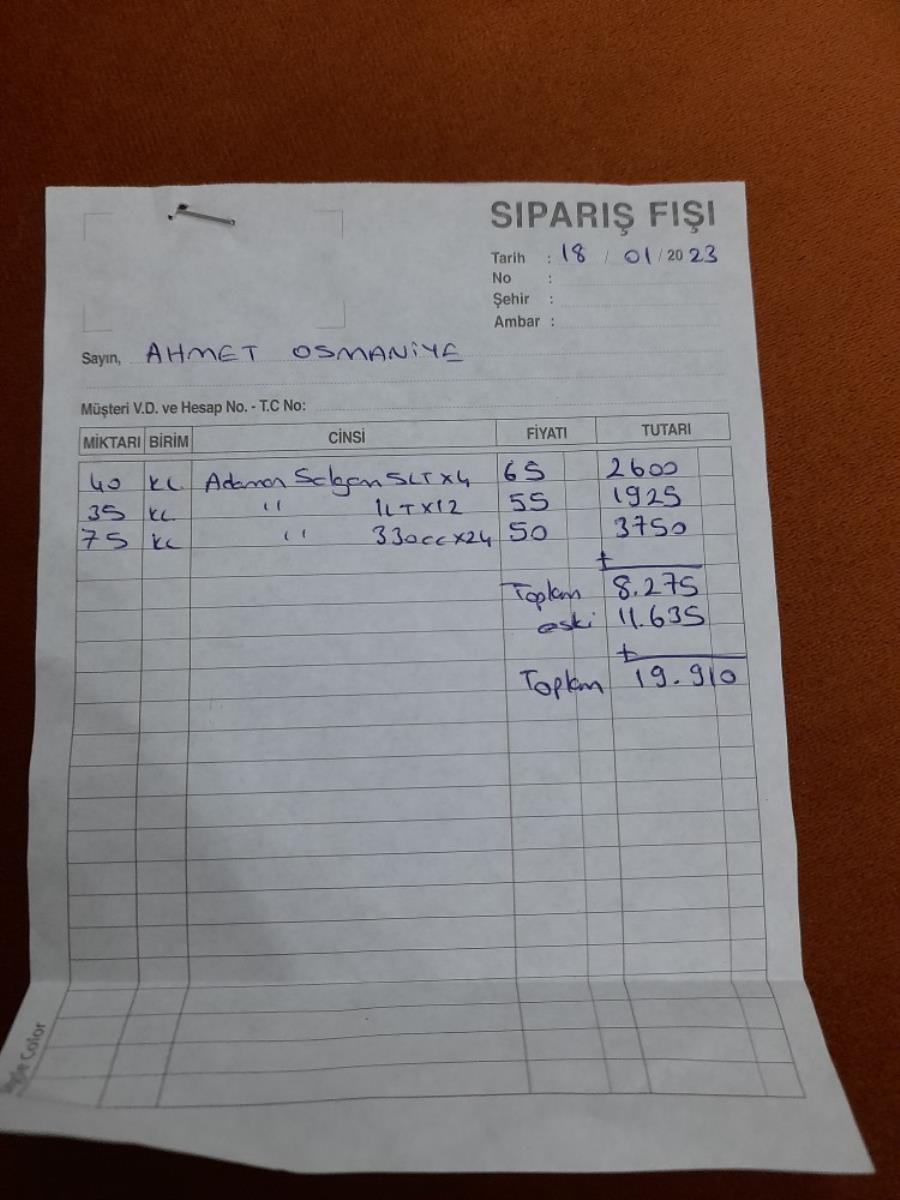 SIPARIŞ FIŞI
Tarih : 18 / 01 / 2023
No :
Şehir :
Ambar :
Sayın, AHMET OSMANİYE
Müşteri V.D. ve Hesap No. - T.C No:
MİKTARI BİRİM CİNSİ FİYATI TUTARI
40 KL Adaman Salgam 5LT x4 65 2600
35 KL " 1LT x12 55 1925
75 KL " 330cc x24 50 3750
+
Toplam 8.275
eski 11.635
+
Toplam 19.910
Color